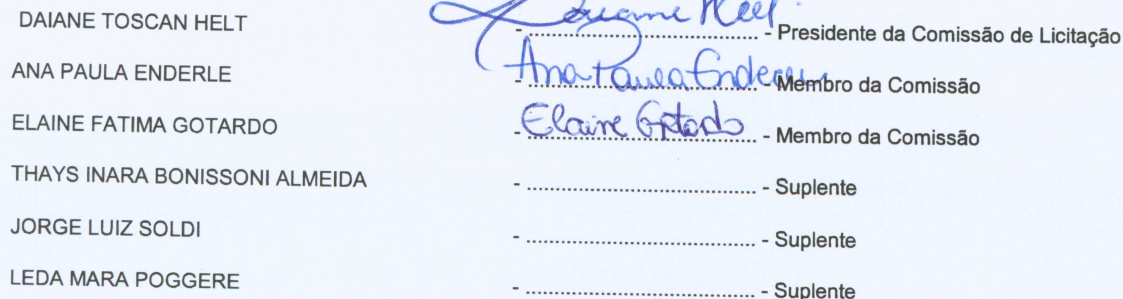 DAIANE TOSCAN HELT - Daiane Helt - Presidente da Comissão de Licitação
ANA PAULA ENDERLE - Ana Paula Enderle - Membro da Comissão
ELAINE FATIMA GOTARDO - Elaine Gotardo - Membro da Comissão
THAYS INARA BONISSONI ALMEIDA - ........................................ - Suplente
JORGE LUIZ SOLDI - ........................................ - Suplente
LEDA MARA POGGERE - ........................................ - Suplente